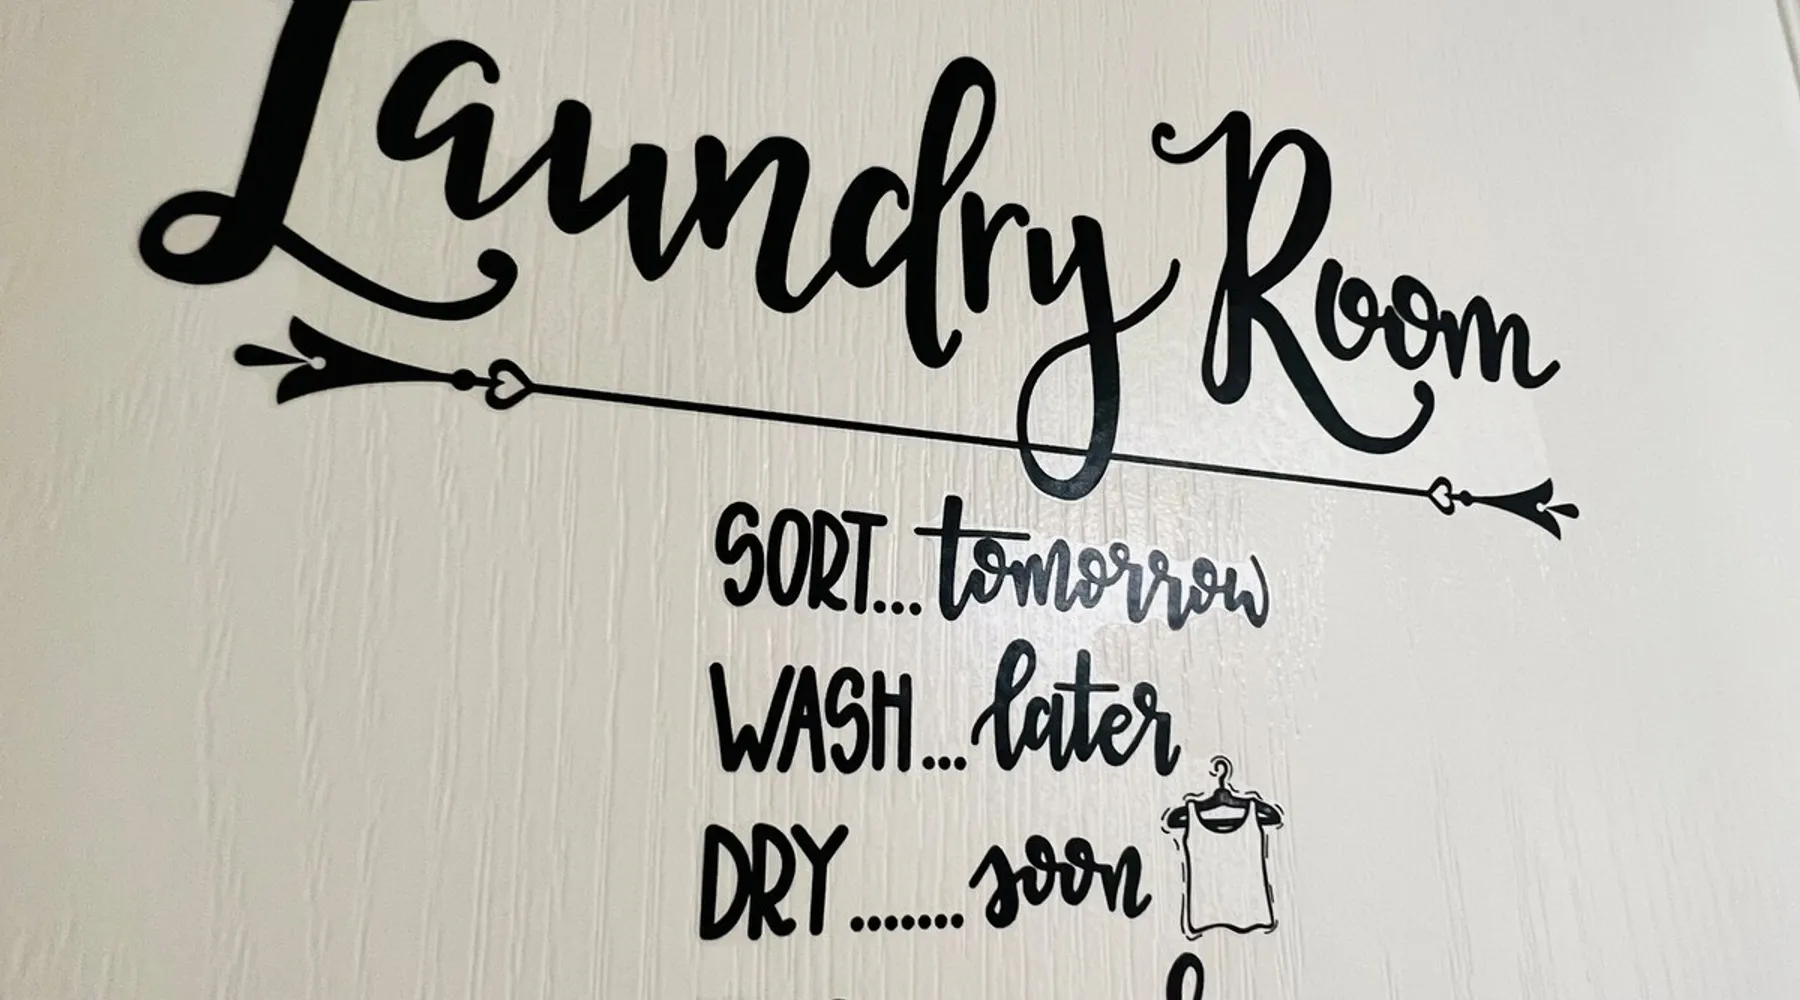 Laundry Room
SORT...tomorrow
WASH...later
DRY.......soon